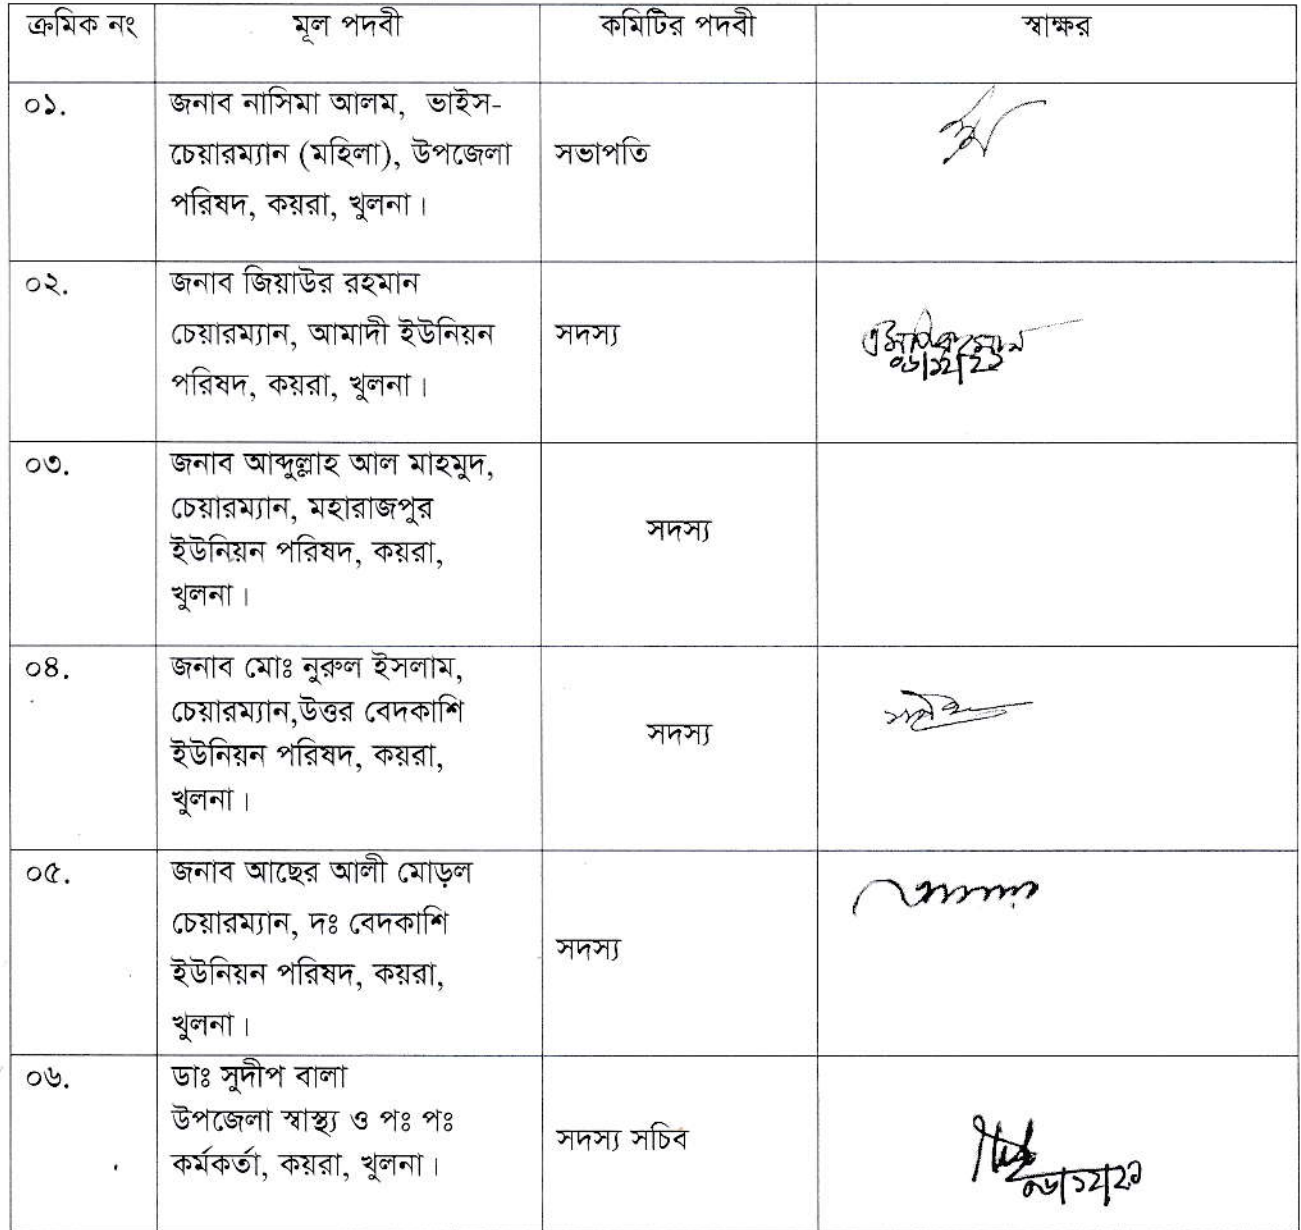 ক্রমিক নং মূল পদবী কমিটির পদবী স্বাক্ষর
০১. জনাব নাসিমা আলম, ভাইস-
চেয়ারম্যান (মহিলা), উপজেলা
পরিষদ, কয়রা, খুলনা।
সভাপতি
০২. জনাব জিয়াউর রহমান
চেয়ারম্যান, আমাদী ইউনিয়ন
পরিষদ, কয়রা, খুলনা।
সদস্য
০৬/১২/২১
০৩. জনাব আব্দুল্লাহ আল মাহমুদ,
চেয়ারম্যান, মহারাজপুর
ইউনিয়ন পরিষদ, কয়রা,
খুলনা।
সদস্য
০৪. জনাব মোঃ নুরুল ইসলাম,
চেয়ারম্যান,উত্তর বেদকাশি
ইউনিয়ন পরিষদ, কয়রা,
খুলনা।
সদস্য
০৫. জনাব আছের আলী মোড়ল
চেয়ারম্যান, দঃ বেদকাশি
ইউনিয়ন পরিষদ, কয়রা,
খুলনা।
সদস্য
০৬. ডাঃ সুদীপ বালা
উপজেলা স্বাস্থ্য ও পঃ পঃ
কর্মকর্তা, কয়রা, খুলনা।
সদস্য সচিব
০৬/১২/২১